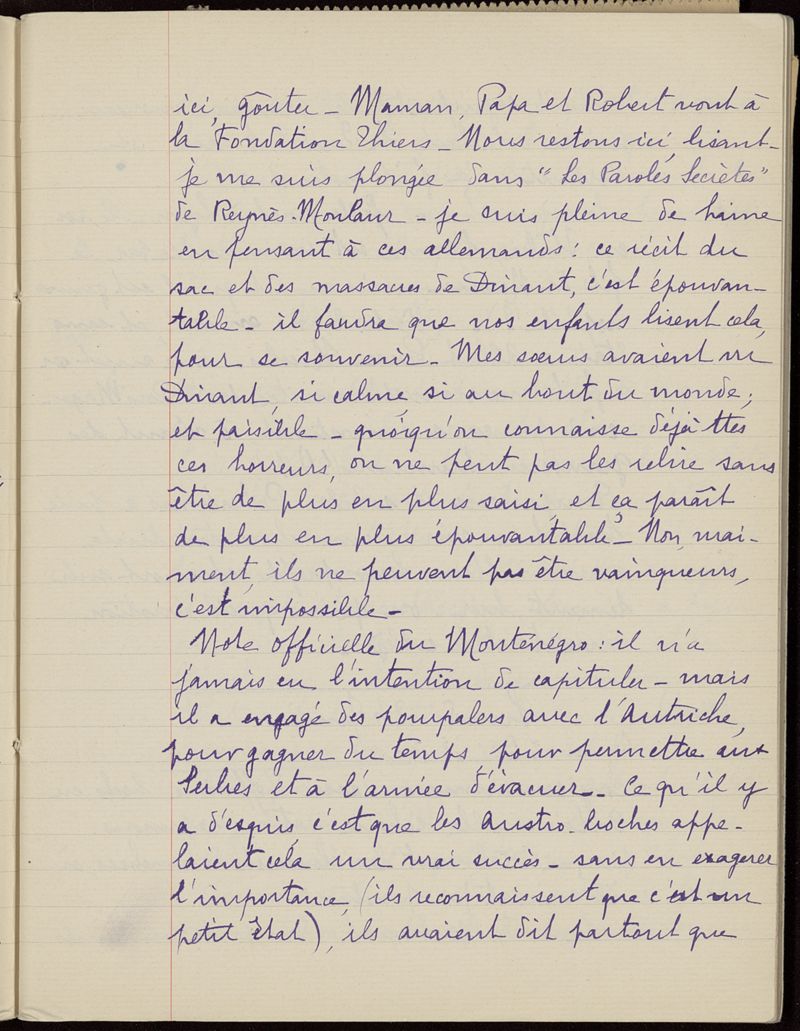 ici, goûter – Maman, Papa et Robert vont à
la Fondation Thiers – Nous restons ici, lisant –
je me suis plongée dans "Les Paroles Secrètes"
de Reynès-Monlaur – je suis pleine de haine
en pensant à ces allemands : ce récit du
sac et des massacres de Dinant, c'est épouvan–
table – il faudra que nos enfants lisent cela,
pour se souvenir – Mes sœurs avaient vu
Dinant, si calme, si au bout du monde,
et paisible – quoiqu'on connaisse déjà ttes
ces horreurs, on ne peut pas les relire sans
être de plus en plus saisi, et ça paraît
de plus en plus épouvantable – Non, vrai–
ment, ils ne peuvent pas être vainqueurs,
c'est impossible –
Note officielle du Monténégro : il n'a
jamais eu l'intention de capituler – mais
il a engagé des pourpalers avec l'Autriche,
pour gagner du temps, pour permettre aux
Serbes et à l'armée d'évacuer – Ce qu'il y
a d'exquis, c'est que les Austro-boches appe–
laient cela un vrai succès – sans en exagérer
l'importance, (ils reconnaissent que c'est un
petit état), ils avaient dit partout que